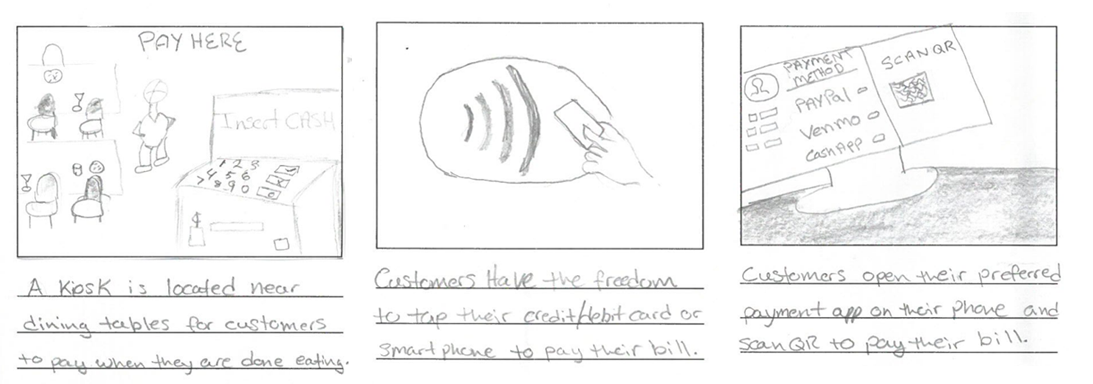 PAY HERE
Insert CASH
1 2 3
4 5 6
7 8 9 0
$
A Kiosk is located near
dining tables for customers
to pay when they are done eating.
Customers Have the freedom
to tap their credit/debit card or
smartphone to pay their bill.
PAYMENT
METHOD
PAYPal
Venmo
CashApp
SCAN QR
Customers open their preferred
payment app on their phone and
scan QR to pay their bill.